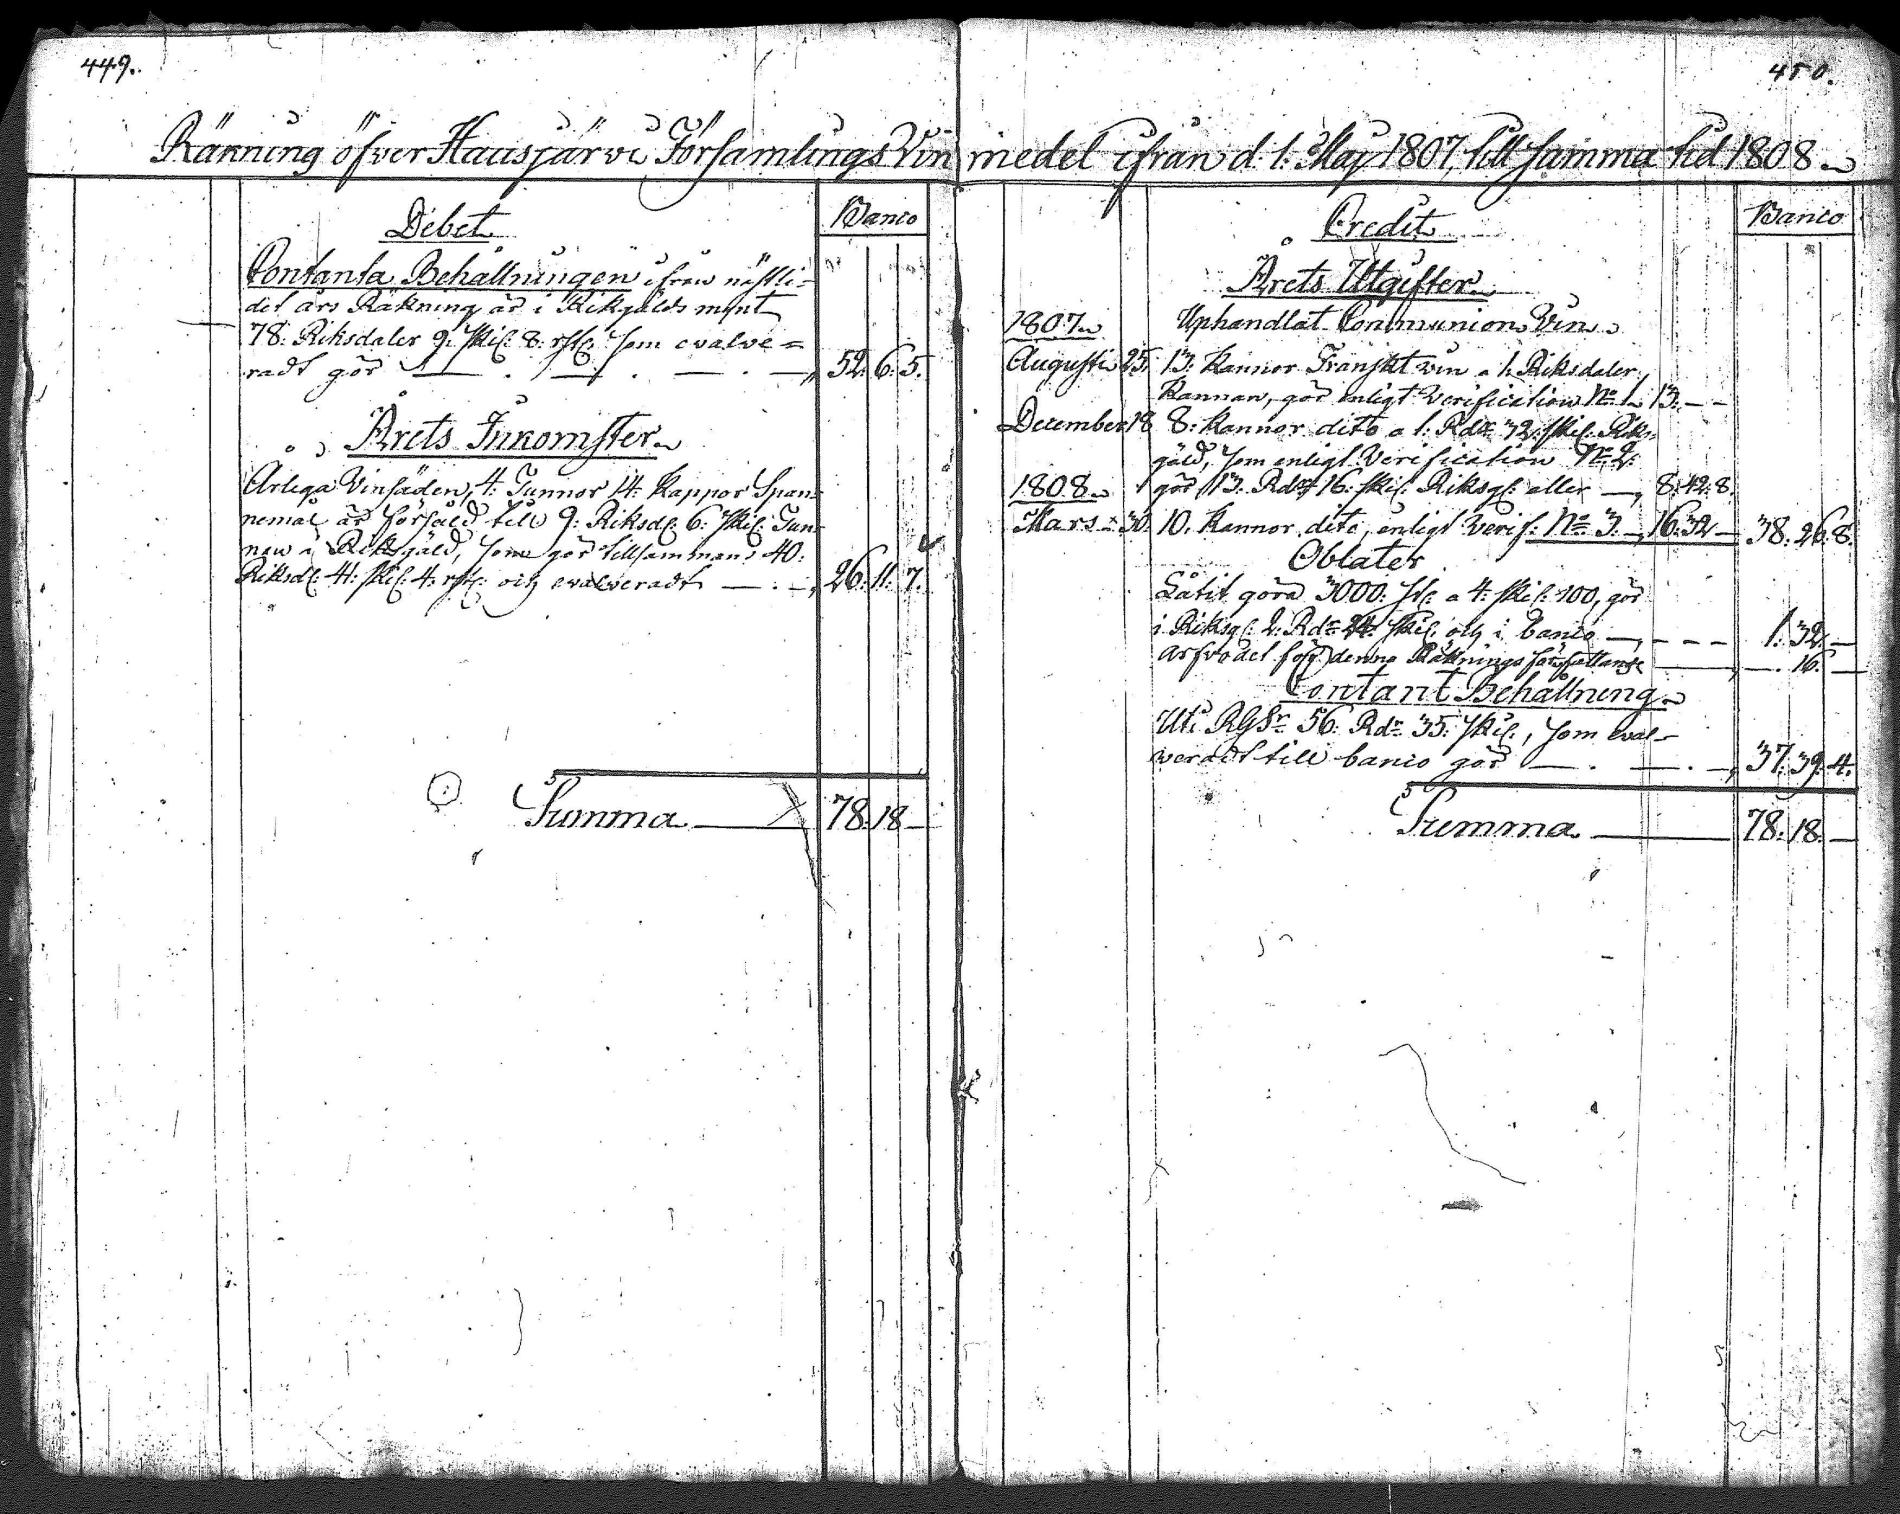 449.
450.
Räkning öfver Hausjärvi Församlings Vin medel ifrån d. 1. Maij 1807, till samma tid 1808
Debet
Banco
Contanta Behållningen ifrån nästli=
det års Räkning är i Riksgälds mynt
78: Riksdaler 9: skil: 8: rst: som evalve=
radt gör 52. 6. 5.
Årets Inkomster
Årliga Vinsäden, 4: Tunnor 14: Kappor Span-
nemål är försåld till 9: Riksd: 6: skil: Tun-
nan i Riksgäld, som gör tillsammans 40:
Riksd: 41: skil: 4: rst: och evalveradt 26: 11: 7.
Summa 78. 18 —
Credit
Banco
Årets Utgifter
1807 Uphandlat Communion Vin
Augusti 25. 13: Kannor Franskt vin a 1. Riksdaler,
Kannan, gör enligt Verification No 1. 13. — —
December 18 8: Kannor dito a 1: Rdr 32: skil: Riks-
gäld, som enligt Verification No 2:
1808 gör 13: Rdr 16: skil: Riksg: eller 8: 42: 8.
Mars 30. 10. Kannor dito, enligt Verif: No 3. 16: 32 — 38. 26. 8.
Oblater
Låtit göra 3000: st: a 4: skil: 100, gör
i Riksg: 2: Rdr 24: skil: och i banco 1: 32. —
Arfvodet för denna Räknings författande — 16. —
Contant Behållning
Uti RGSr 56: Rdr 35: skil:, som eval-
veradt till banco gör 37: 39. 4.
Summa 78: 18. —